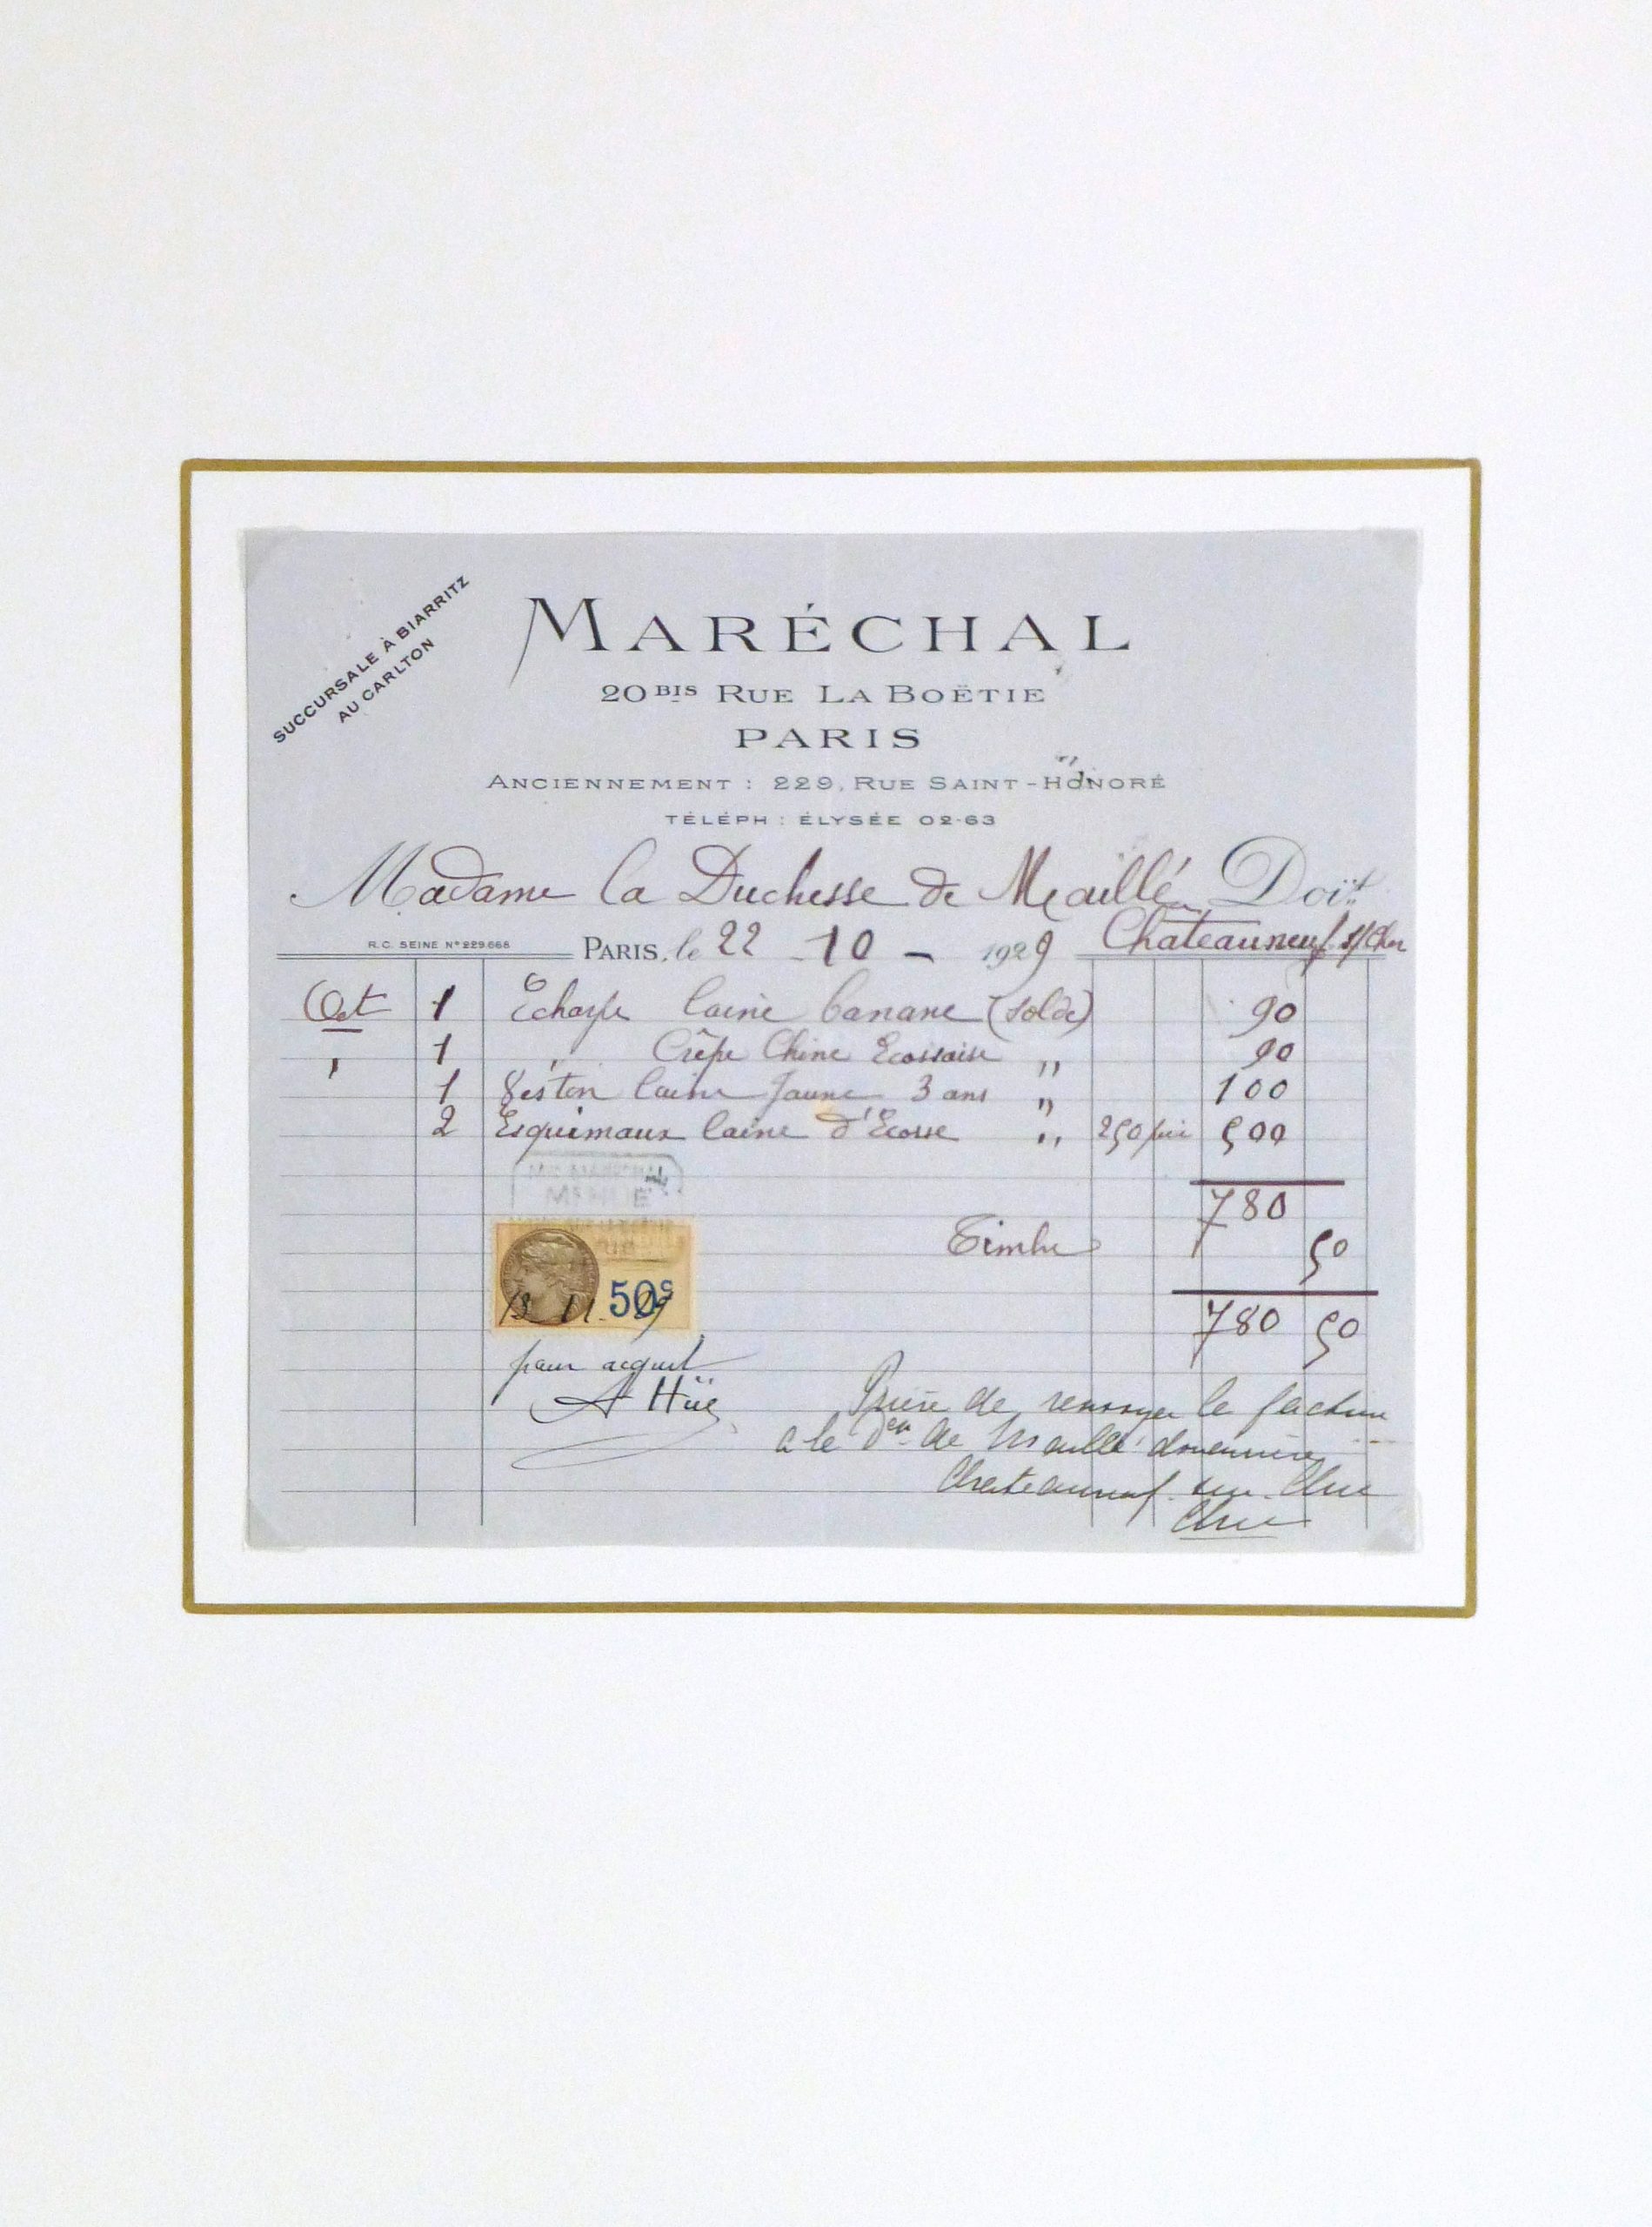 SUCCURSALE À BIARRITZ
AU CARLTON
MARÉCHAL
20 BIS RUE LA BOËTIE
PARIS
ANCIENNEMENT : 229, RUE SAINT-HONORÉ
TÉLÉPH : ÉLYSÉE 02-63
Madame la Duchesse de Maillé Doit
à Châteauneuf s/Cher
R.C. SEINE N° 229.666 PARIS, le 22 - 10 - 1929
Oct 1 Echarpe laine banane (solde) 90
" 1 " Crêpe Chine Ecossaise " 90
1 Veston laine Jaune 3 ans " 100
2 Esquimaux laine d'Ecosse " 250 500
780
Timbre 50
780 50
50c
13 11 29
pour acquit
A Hüe
Prière de renvoyer la facture
a la Dsse de Maillé douairière
Chateauneuf sur Cher
Cher